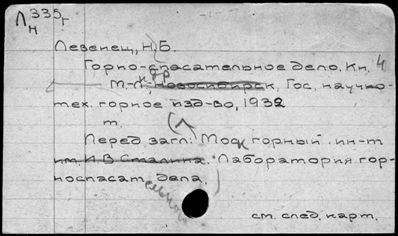 Л 335 г
н
Левенец, Н.Б.
Горно-спасательное дело. Кн. 4
М.-Х., Новосибирск, Гос. научно-
тех. горное изд-во, 1932
т.
Перед загл: Моск горный ин-т
им И.В Сталина. Лаборатория гор-
носпасат дела.
ст. след. карт.